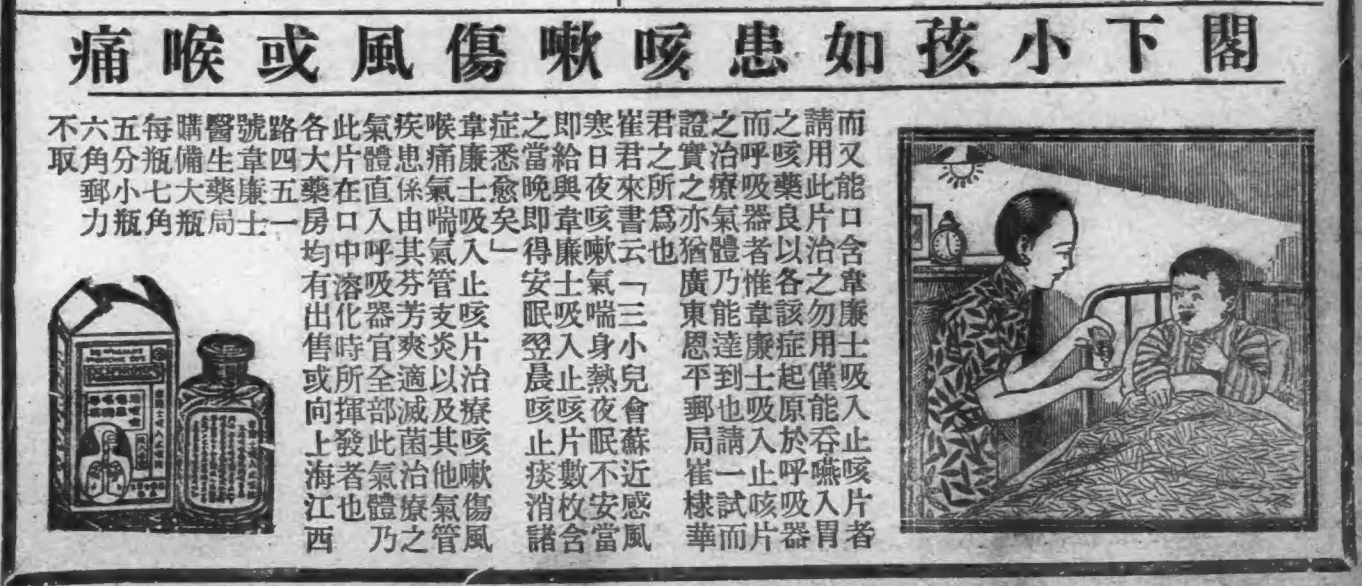 閣下小孩如患咳嗽傷風或喉痛
而又能口含韋廉士吸入止咳片者
請用此片治之勿用僅能吞嚥入胃
之咳藥良以各該症起原於呼吸器
而呼吸器者惟韋廉士吸入止咳片
之治療氣體乃能達到也請一試而
證實之亦猶廣東恩平郵局崔棣華
君之所爲也
崔君來書云「三小兒會蘇近感風
寒日夜咳嗽氣喘身熱夜眠不安當
即給與韋廉士吸入止咳片數枚含
之當晚即得安眠翌晨咳止痰消諸
症悉愈矣」
韋廉士吸入止咳片治療咳嗽傷風
喉痛氣喘氣管支炎以及其他氣管
疾患係由其芬芳爽適滅菌治療之
氣體直入呼吸器官全部此氣體乃
此片在口中溶化時所揮發者也
各大藥房均有出售或向上海江西
路四五一
號韋廉士
醫生藥局
購備大瓶
每瓶七角
五分小瓶
六角郵力
不取